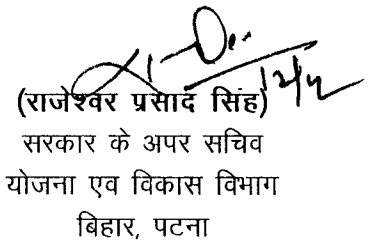 (राजेश्वर प्रसाद सिंह)
सरकार के अपर सचिव
योजना एव विकास विभाग
बिहार, पटना